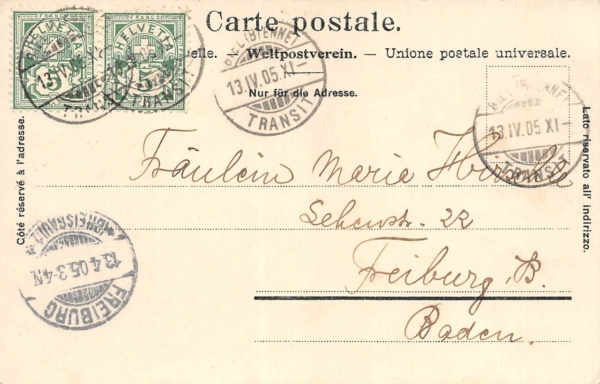 Carte postale.
HELVETIA HELVETIA
5 5
Weltpostverein. — Unione postale universale.
Nur für die Adresse.
BIEL (BIENNE)
13.IV.05.XI-
TRANSIT
BIEL (BIENNE)
13.IV.05 XI-
TRANSIT
Côté réservé à l'adresse.
Lato riservato all' indirizzo.
Fräulein Marie
22
Freiburg B.
Baden.
FREIBURG (BREISGAU)
13.4.05.3-4N